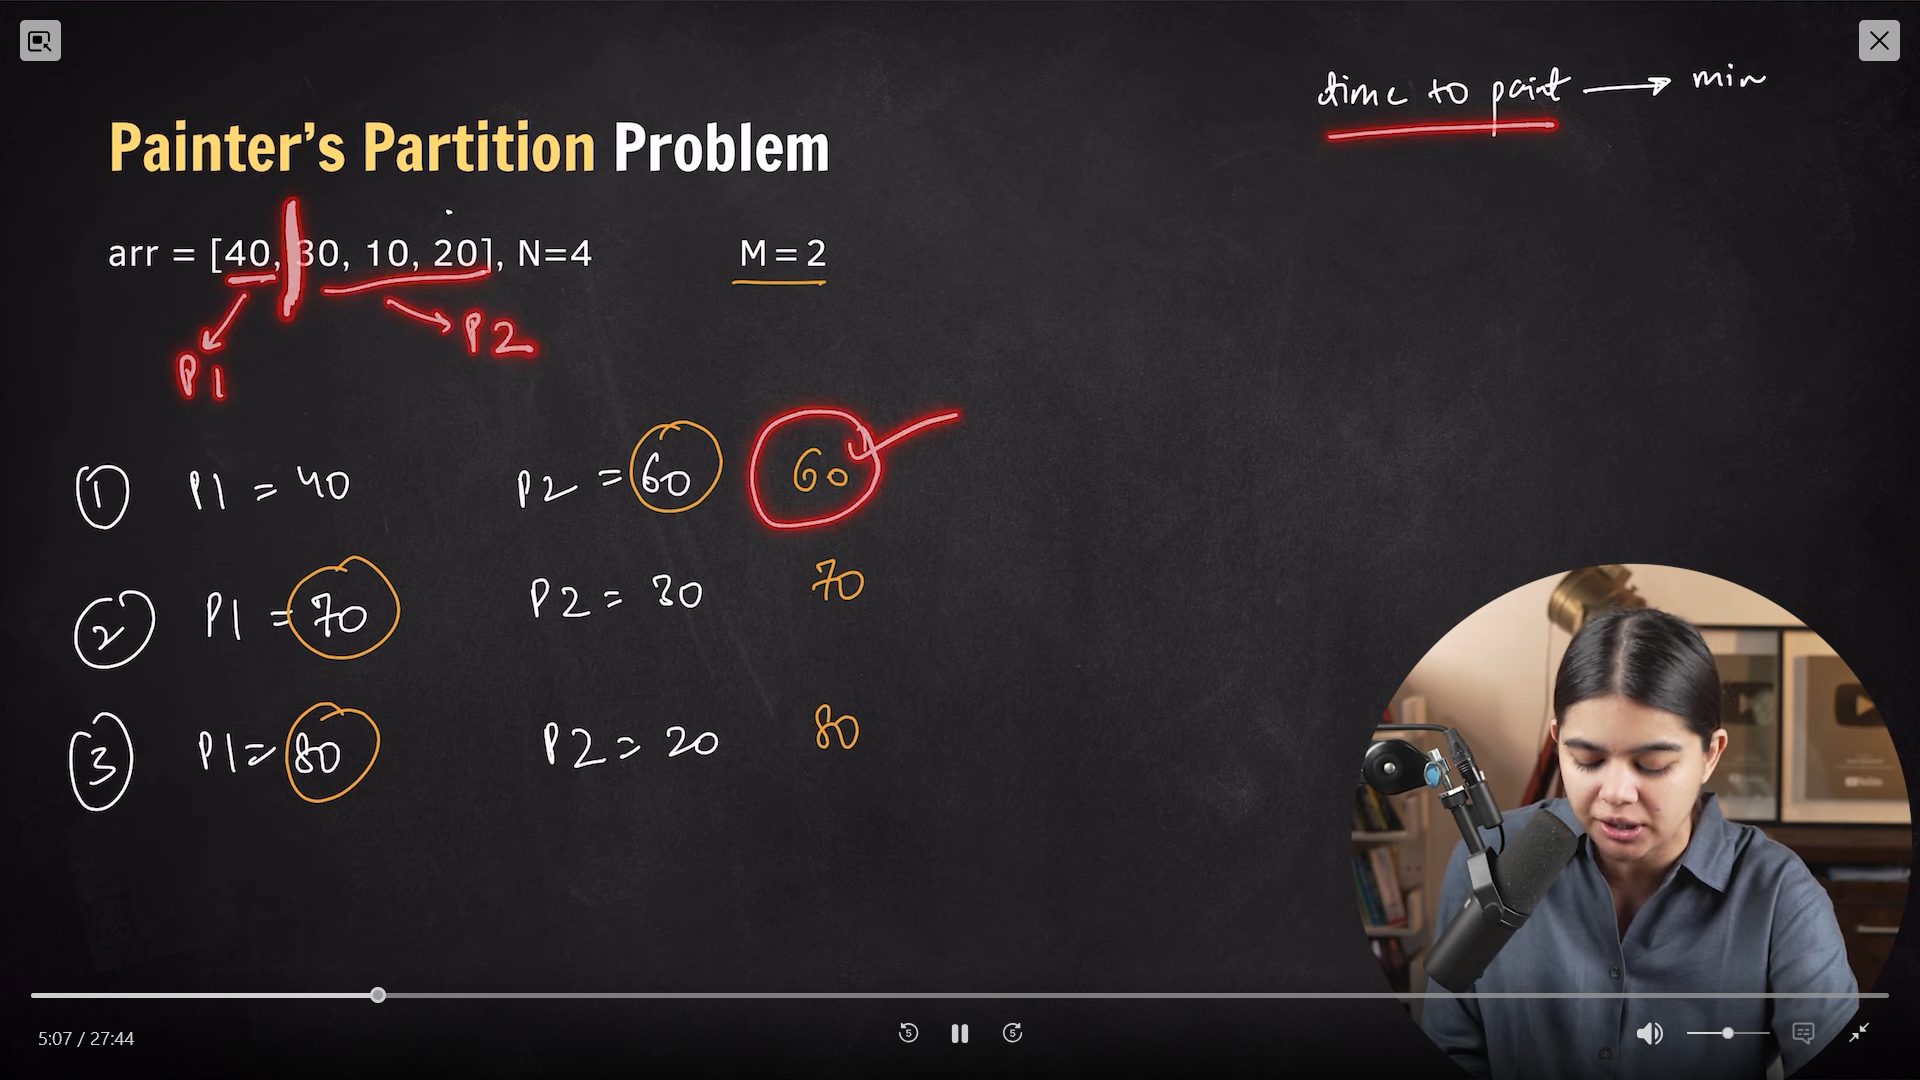 time to paint → min
Painter's Partition Problem
arr = [40, 30, 10, 20], N=4 M = 2
P1 P2
① P1 = 40 P2 = 60 60
② P1 = 70 P2 = 30 70
③ P1 = 80 P2 = 20 80
5:07 / 27:44 5 5